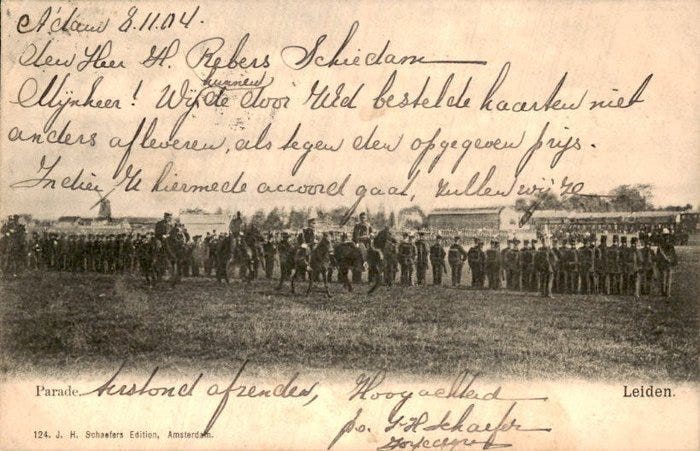 A'dam 8.11.04.
den Heer H. Rebers Schiedam
kunnen
Mijnheer! Wij de door UEd bestelde kaarten niet
anders afleveren, als tegen den opgegeven prijs.
Indien U hiermede accoord gaat, zullen wij ze
Parade. terstond afzenden, Hoogachtend Leiden.
p.o. J. H. Schaefer
124. J. H. Schaefers Edition, Amsterdam.